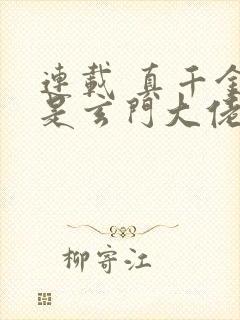 連載 真千金
是玄門大佬
柳寄江